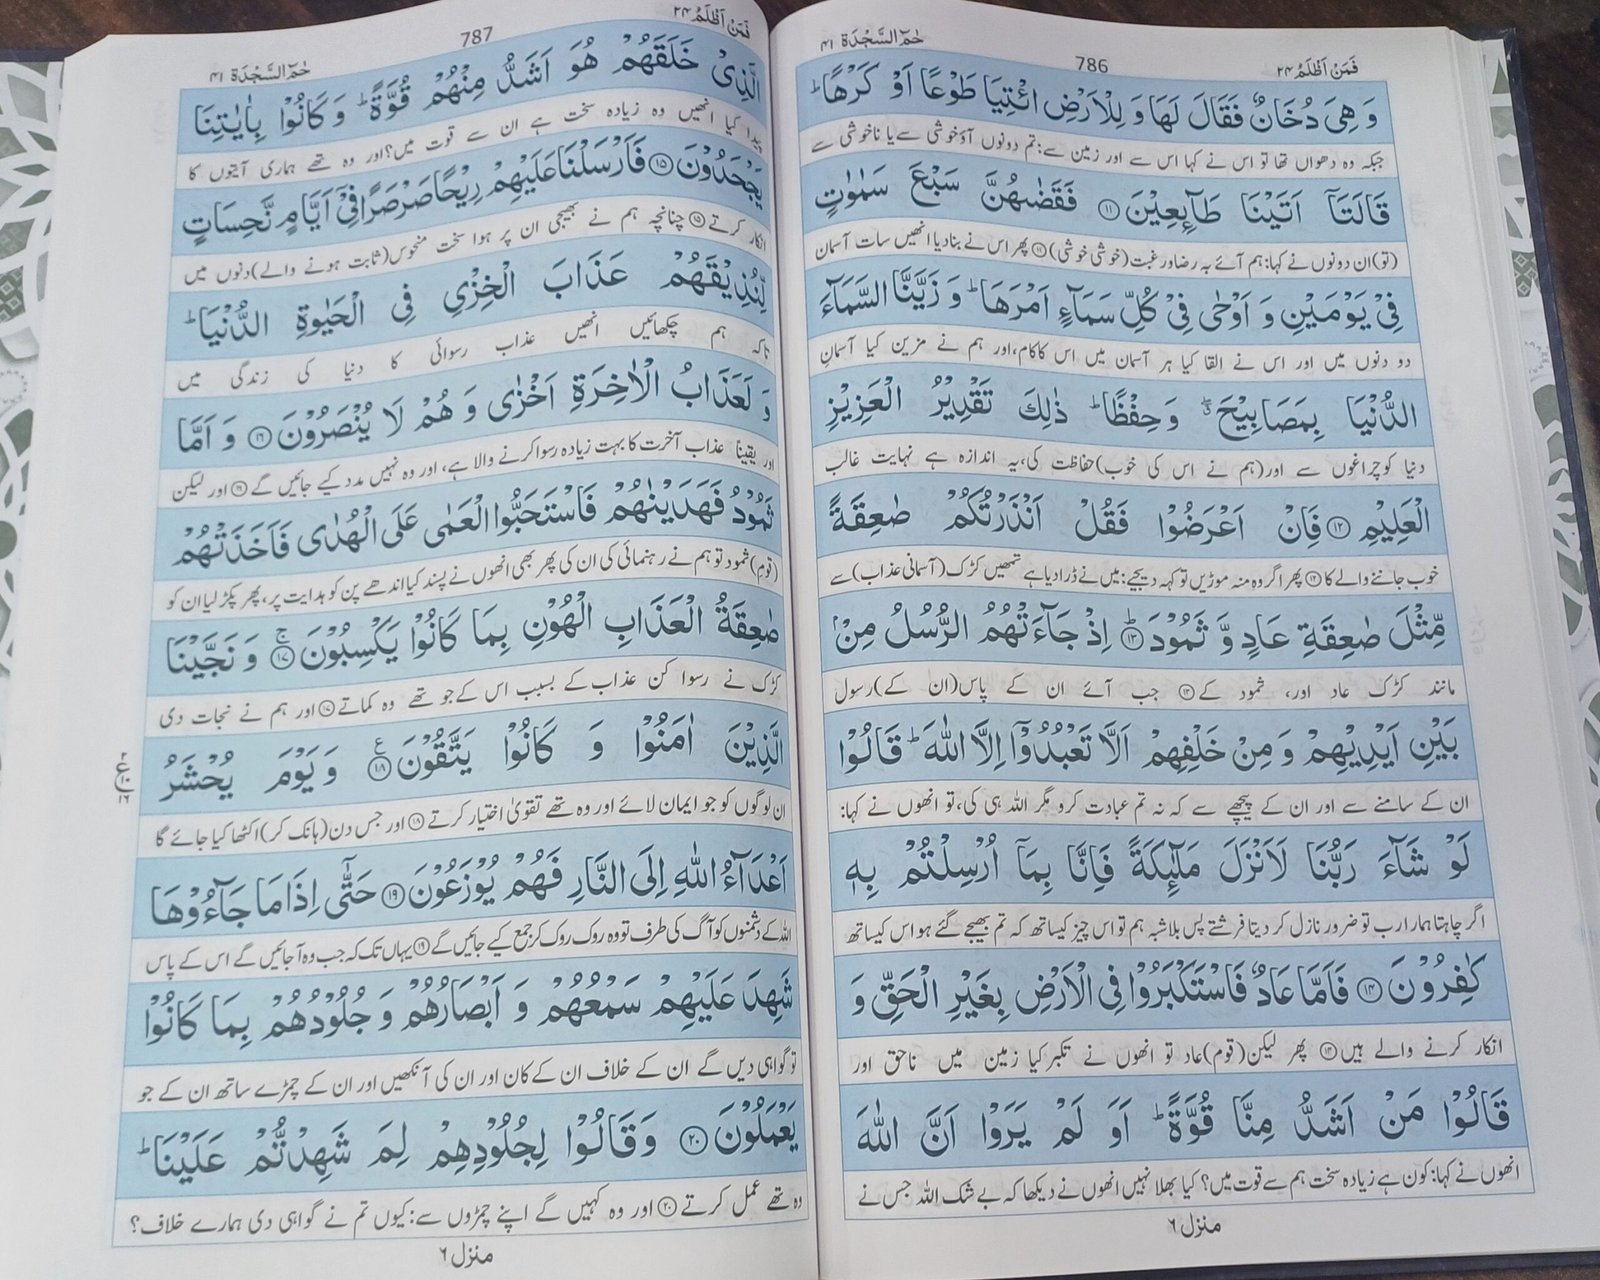 فَمَنْ اَظْلَمُ ۲۴
786
حٰمٓ السَّجْدَة ۴۱
وَ هِیَ دُخَانٌ فَقَالَ لَهَا وَ لِلْاَرْضِ ائْتِیَا طَوْعًا اَوْ كَرْهًا ؕ
جبکہ وہ دھواں تھا تو اس نے کہا اس سے اور زمین سے: تم دونوں آؤ خوشی سے یا ناخوشی سے
قَالَتَاۤ اَتَیْنَا طَآىِٕعِیْنَ ⑪ فَقَضٰىهُنَّ سَبْعَ سَمٰوٰتٍ
(تو) ان دونوں نے کہا: ہم آئے بہ رضا ورغبت (خوشی خوشی) ⑪ پھر اس نے بنا دیا انھیں سات آسمان
فِیْ یَوْمَیْنِ وَ اَوْحٰی فِیْ كُلِّ سَمَآءٍ اَمْرَهَا ؕ وَ زَیَّنَّا السَّمَآءَ
دو دنوں میں اور اس نے القا کیا ہر آسمان میں اس کا کام، اور ہم نے مزین کیا آسمانِ
الدُّنْیَا بِمَصَابِیْحَ ۖۗ وَ حِفْظًا ؕ ذٰلِكَ تَقْدِیْرُ الْعَزِیْزِ
دنیا کو چراغوں سے اور (ہم نے اس کی خوب) حفاظت کی، یہ اندازہ ہے نہایت غالب
الْعَلِیْمِ ⑫ فَاِنْ اَعْرَضُوْا فَقُلْ اَنْذَرْتُكُمْ صٰعِقَةً
خوب جاننے والے کا ⑫ پھر اگر وہ منہ موڑیں تو کہہ دیجیے: میں نے ڈرا دیا ہے تمھیں کڑک (آسمانی عذاب) سے
مِّثْلَ صٰعِقَةِ عَادٍ وَّ ثَمُوْدَ ؕ ⑬ اِذْ جَآءَتْهُمُ الرُّسُلُ مِنْۢ
مانند کڑک عاد اور، ثمود کے ⑬ جب آئے ان کے پاس (ان کے) رسول
بَیْنِ اَیْدِیْهِمْ وَ مِنْ خَلْفِهِمْ اَلَّا تَعْبُدُوْۤا اِلَّا اللّٰهَ ؕ قَالُوْا
ان کے سامنے سے اور ان کے پیچھے سے کہ نہ تم عبادت کرو مگر اللہ ہی کی، تو انھوں نے کہا:
لَوْ شَآءَ رَبُّنَا لَاَنْزَلَ مَلٰٓىِٕكَةً فَاِنَّا بِمَاۤ اُرْسِلْتُمْ بِهٖ
اگر چاہتا ہمارا رب تو ضرور نازل کر دیتا فرشتے پس بلاشبہ ہم تو اس چیز کیساتھ کہ تم بھیجے گئے ہو اس کیساتھ
كٰفِرُوْنَ ⑭ فَاَمَّا عَادٌ فَاسْتَكْبَرُوْا فِی الْاَرْضِ بِغَیْرِ الْحَقِّ وَ
انکار کرنے والے ہیں ⑭ پھر لیکن (قوم) عاد تو انھوں نے تکبر کیا زمین میں ناحق اور
قَالُوْا مَنْ اَشَدُّ مِنَّا قُوَّةً ؕ اَوَ لَمْ یَرَوْا اَنَّ اللّٰهَ
انھوں نے کہا: کون ہے زیادہ سخت ہم سے قوت میں؟ کیا بھلا نہیں انھوں نے دیکھا کہ بے شک اللہ جس نے
منزل ۶
فَمَنْ اَظْلَمُ ۲۴
787
حٰمٓ السَّجْدَة ۴۱
الَّذِیْ خَلَقَهُمْ هُوَ اَشَدُّ مِنْهُمْ قُوَّةً ؕ وَ كَانُوْا بِاٰیٰتِنَا
پیدا کیا انھیں وہ زیادہ سخت ہے ان سے قوت میں؟ اور وہ تھے ہماری آیتوں کا
یَجْحَدُوْنَ ⑮ فَاَرْسَلْنَا عَلَیْهِمْ رِیْحًا صَرْصَرًا فِیْۤ اَیَّامٍ نَّحِسَاتٍ
انکار کرتے ⑮ چنانچہ ہم نے بھیجی ان پر ہوا سخت منحوس (ثابت ہونے والے) دنوں میں
لِّنُذِیْقَهُمْ عَذَابَ الْخِزْیِ فِی الْحَیٰوةِ الدُّنْیَا ؕ
تاکہ ہم چکھائیں انھیں عذاب رسوائی کا دنیا کی زندگی میں
وَ لَعَذَابُ الْاٰخِرَةِ اَخْزٰی وَ هُمْ لَا یُنْصَرُوْنَ ⑯ وَ اَمَّا
اور یقینًا عذاب آخرت کا بہت زیادہ رسوا کرنے والا ہے، اور وہ نہیں مدد کیے جائیں گے ⑯ اور لیکن
ثَمُوْدُ فَهَدَیْنٰهُمْ فَاسْتَحَبُّوا الْعَمٰی عَلَی الْهُدٰی فَاَخَذَتْهُمْ
(قوم) ثمود تو ہم نے رہنمائی کی ان کی پھر بھی انھوں نے پسند کیا اندھے پن کو ہدایت پر، پھر پکڑ لیا ان کو
صٰعِقَةُ الْعَذَابِ الْهُوْنِ بِمَا كَانُوْا یَكْسِبُوْنَ ۚ ⑰ وَ نَجَّیْنَا
کڑک نے رسوا کن عذاب کے بسبب اس کے جو تھے وہ کماتے ⑰ اور ہم نے نجات دی
الَّذِیْنَ اٰمَنُوْا وَ كَانُوْا یَتَّقُوْنَ ⑱ وَ یَوْمَ یُحْشَرُ
ان لوگوں کو جو ایمان لائے اور وہ تھے تقویٰ اختیار کرتے ⑱ اور جس دن (ہانک کر) اکٹھا کیا جائے گا
اَعْدَآءُ اللّٰهِ اِلَی النَّارِ فَهُمْ یُوْزَعُوْنَ ⑲ حَتّٰۤی اِذَا مَا جَآءُوْهَا
اللہ کے دشمنوں کو آگ کی طرف تو وہ روک روک کر جمع کیے جائیں گے ⑲ یہاں تک کہ جب وہ آ جائیں گے اس کے پاس
شَهِدَ عَلَیْهِمْ سَمْعُهُمْ وَ اَبْصَارُهُمْ وَ جُلُوْدُهُمْ بِمَا كَانُوْا
تو گواہی دیں گے ان کے خلاف ان کے کان اور ان کی آنکھیں اور ان کے چمڑے ساتھ ان کے جو
یَعْمَلُوْنَ ⑳ وَ قَالُوْا لِجُلُوْدِهِمْ لِمَ شَهِدْتُّمْ عَلَیْنَا ؕ
وہ تھے عمل کرتے ⑳ اور وہ کہیں گے اپنے چمڑوں سے: کیوں تم نے گواہی دی ہمارے خلاف؟
منزل ۶